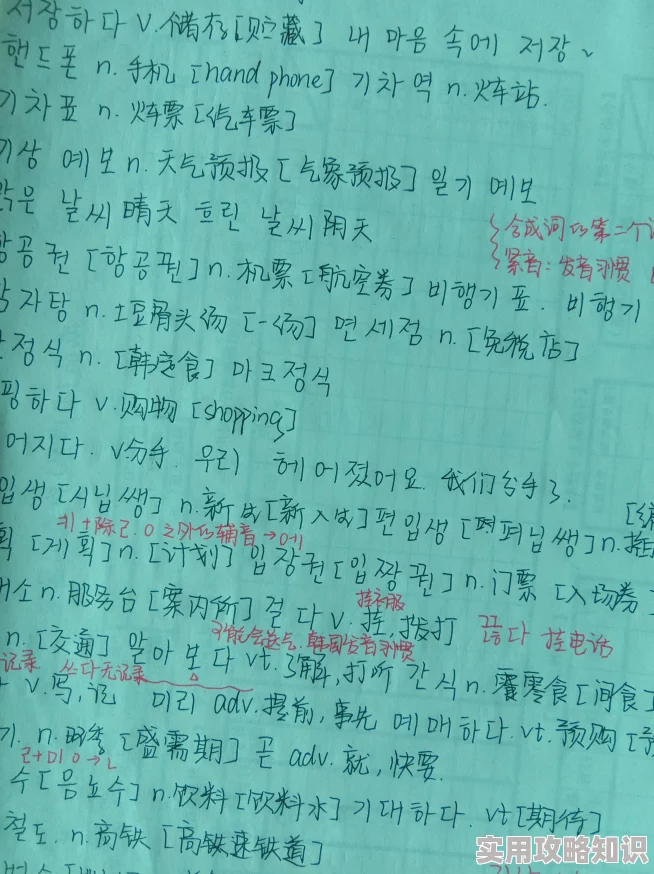 저장하다 v.储存[贮藏] 내 마음 속에 저장~
핸드폰 n.手机 [hand phone] 기차역 n.火车站.
기차표 n.火车票[汽车票]
기상 예보 n.天气预报[气象预报] 일기 예보
맑은 날씨 晴天 흐린 날씨 阴天
合成词的第二个
항공권 [항공꿘] n.机票[航空券] 비행기 표. 비행기
紧音:发音习惯
감자탕 n.土豆骨头汤 [-汤] 면세점 n.[免税店]
정식 n.[韩定食] 마크정식
핑하다 v.购物 [shopping]
어지다. v分手. 우리 헤어졌어요. 我们分手了.
입생 [시닙쌩] n.新生[新入生] 편입생 [펴닙쌩] n.
ㅖ前除ㄹ.ㅇ之外的辅音→에
획 [게획] n.[计划] 입장권[입짱꿘] n.门票[入场券]
挂衣服
내소 n.服务台[案内所] 걸다 v.挂,拨打 끊다 挂电话
n.[交通] 알아보다 vt.了解,打听 간식 n.零食[间食]
记录 쓰다无记录
v.写,记 미리 adv.提前,事先 예매하다.vt.预购
기. n.旺季[盛需期] 곧 adv.就,快要.
수[음뇨수] n.饮料[饮料水] 기대하다.vt[期待]
철도. n.高铁[高铁速铁道]
实用攻略知识